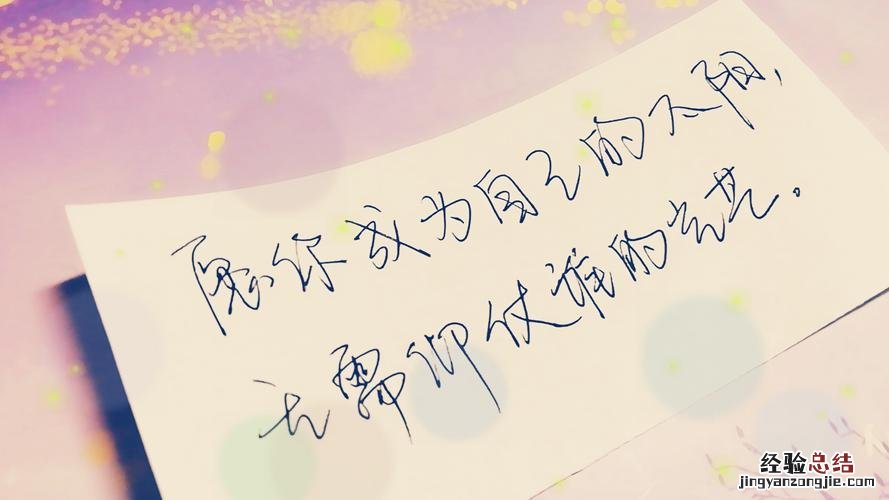 愿你成为自己的太阳，
无需仰仗谁的光芒。
经验总结
jingyanzongjie.com